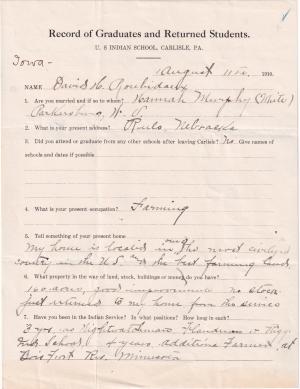 Record of Graduates and Returned Students.
U. S INDIAN SCHOOL, CARLISLE, PA.
Iowa-
August 11th, 1910.
NAME David H. Roubidoux
1. Are you married and if so to whom? Hannah Murphy (White)
Parkersburg, W.
2. What is your present address? Rulo, Nebraska
3. Did you attend or graduate from any other schools after leaving Carlisle? No. Give names
of schools and dates if possible
4. What is your present occupation? Farming
5. Tell something of your present home
My home is located in the most civilized
country in the U S in the best farming lands
6. What property in the way of land, stock, buildings or money do you have?
160 acres, good improvements no stock
just returned to my home from the service
7. Have you been in the Indian Service? In what positions? How long in each?
3 yrs. as Nightwatchman Flandreau
School 4 years Additional Farmer at
Bois Fort Res, Minnesota